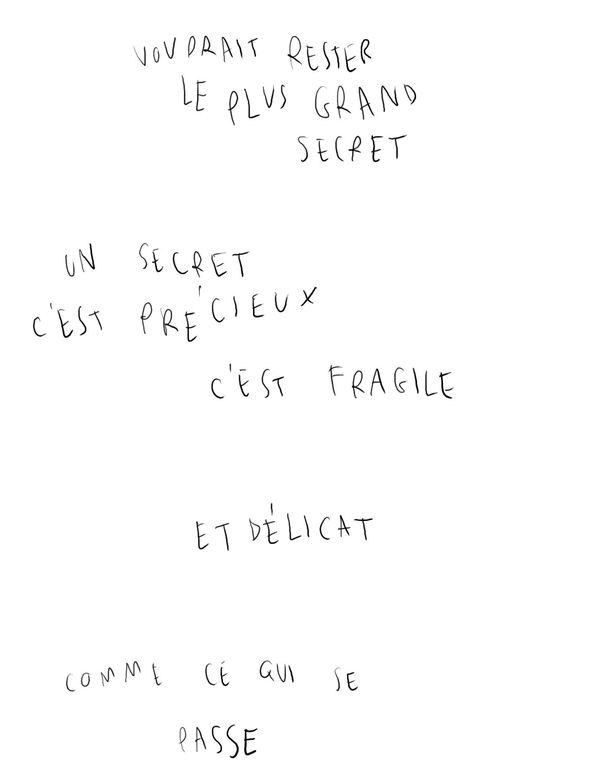 VOUDRAIT RESTER
LE PLUS GRAND
SECRET
UN SECRET
C'EST PRÉCIEUX
C'EST FRAGILE
ET DÉLICAT
COMME CE QUI SE
PASSE